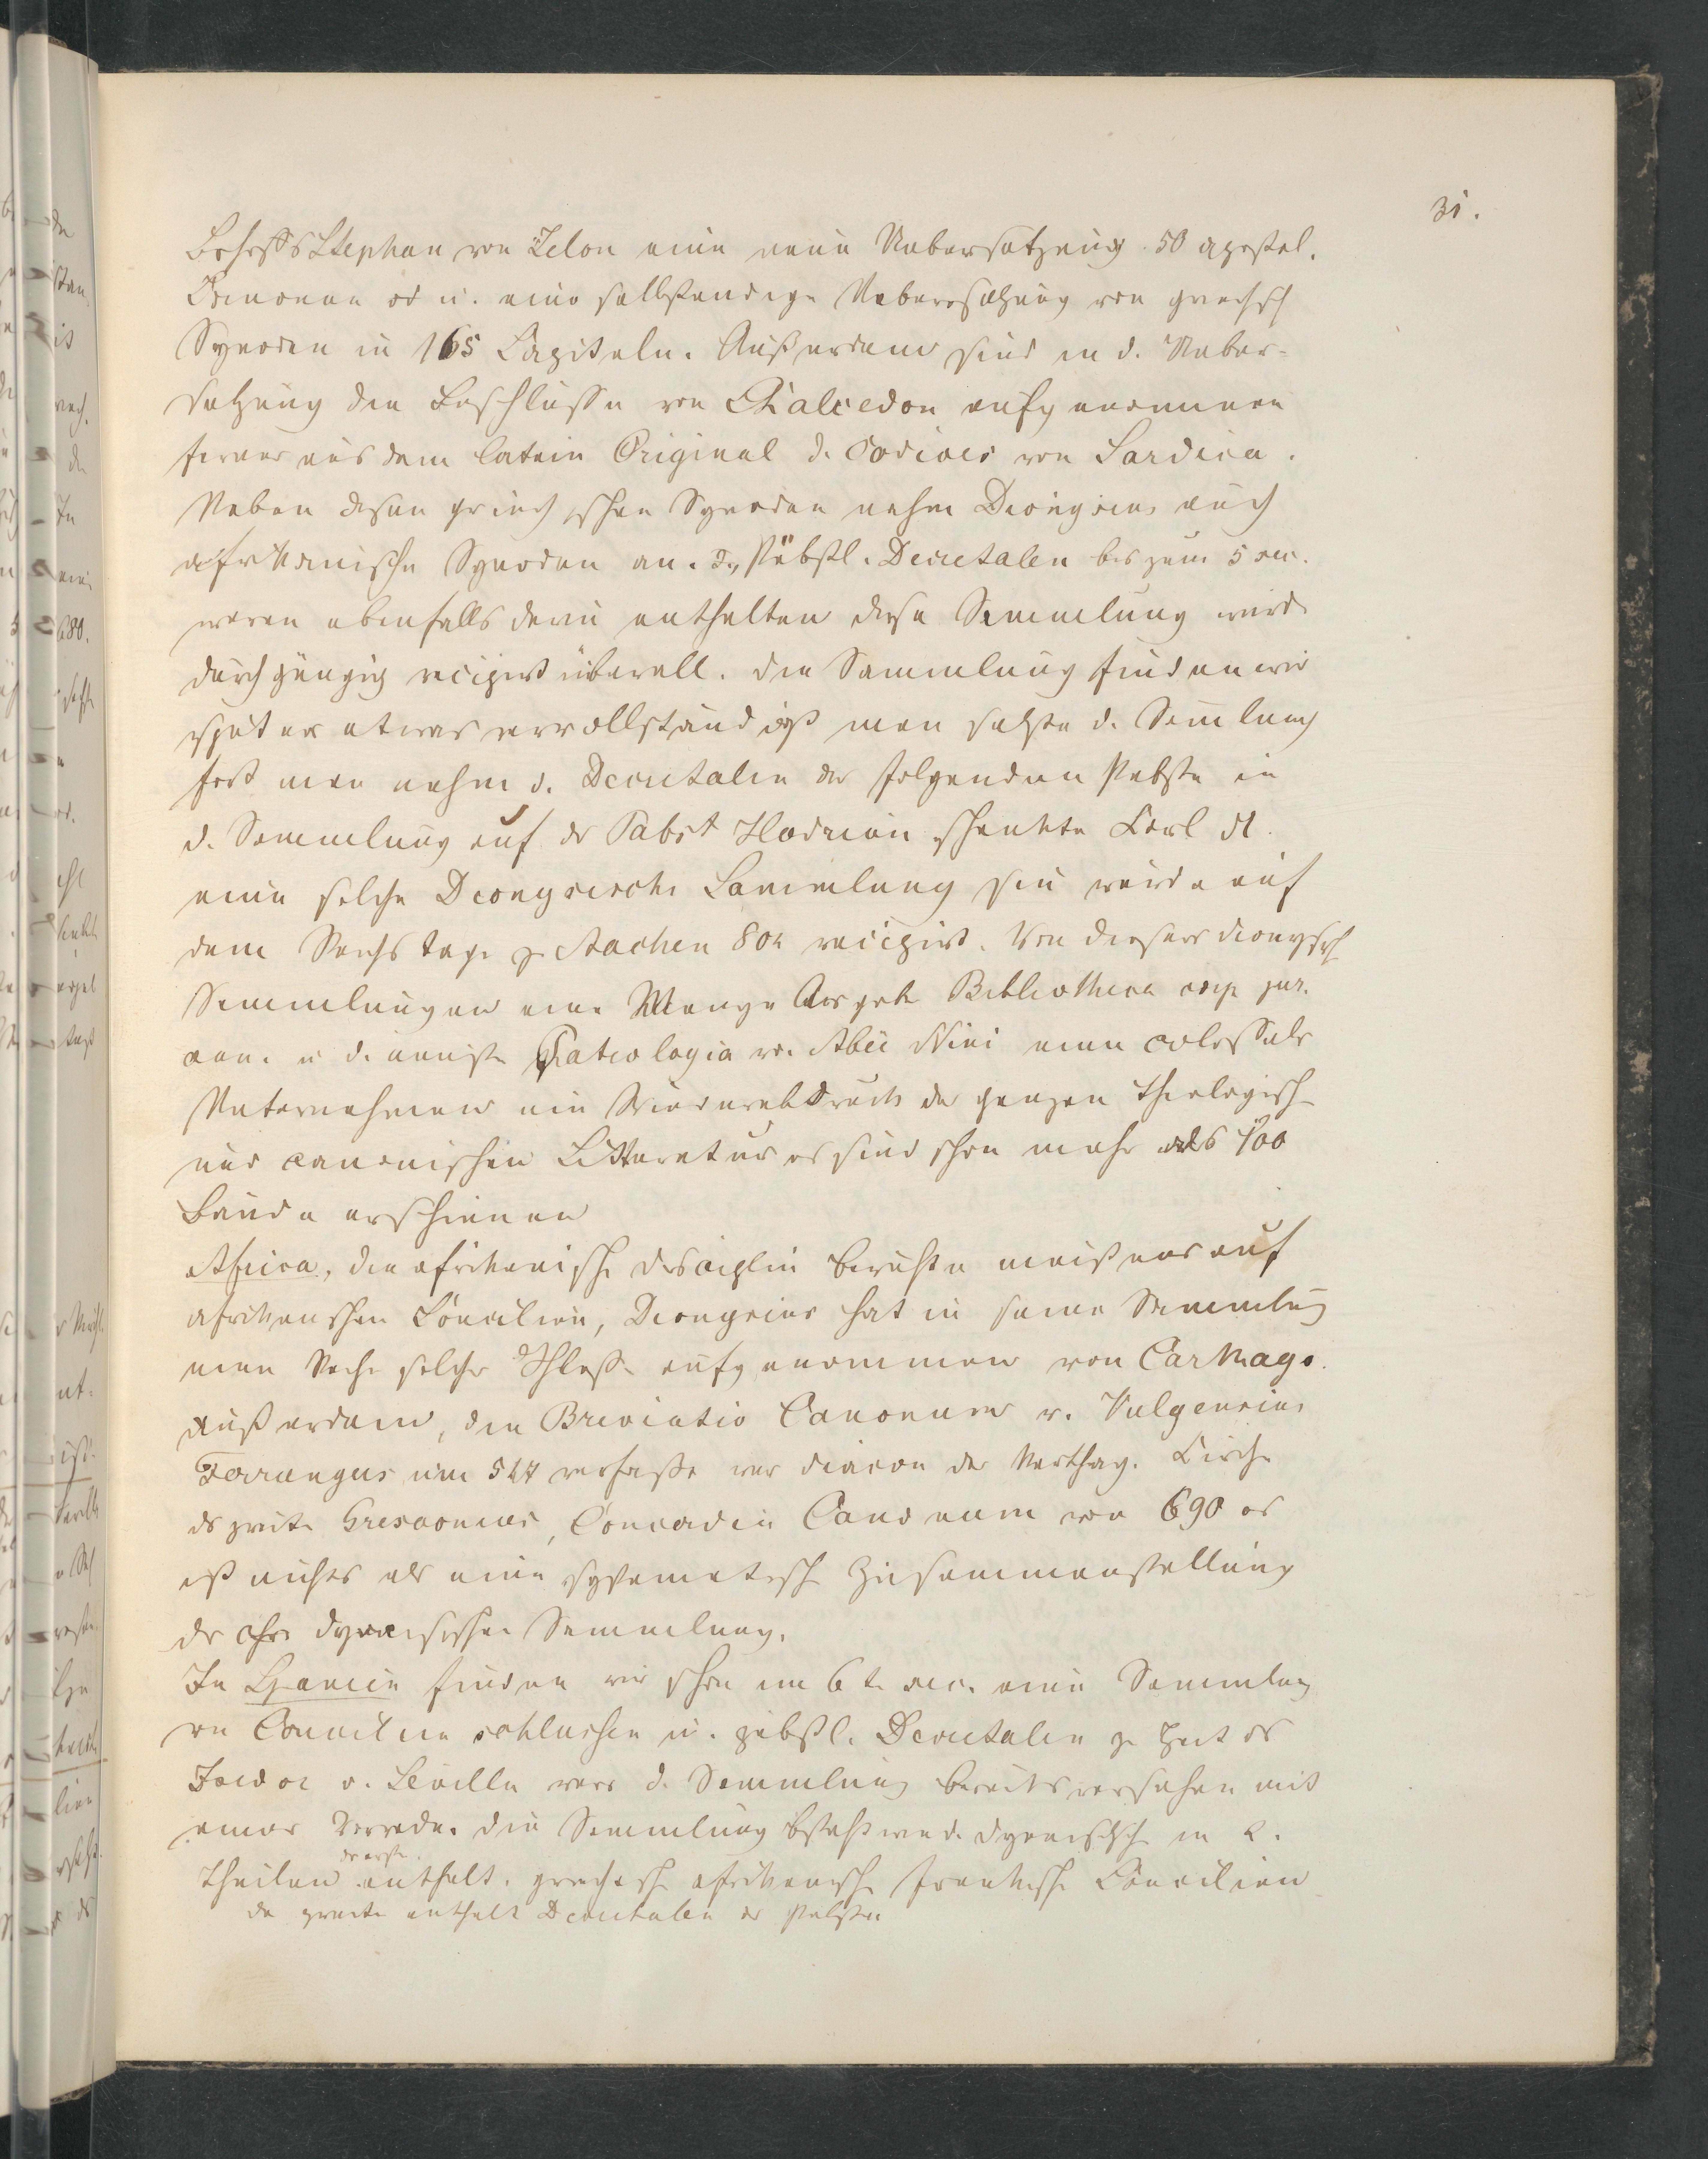 31.
Stephan von Selon eine neue Uebersetzung 50 apostol.
Canonen u. eine selbstendige Uebersetzung von griechsch
Synoden in 165 Capiteln. Außerdem sind in d. Ueber-
setzung die Beschlüsse von Chalcedon aufgenommen
ferner aus dem latein Original d. Codices von Sardica.
Neben diesen griechischen Synoden nahm Dionysius auch
afrikanische Synoden an. d. Päbstl. Decretalen bis zum 5 sec.
waren ebenfalls darin enthalten diese Sammlung wird
durchgängig recipirt überall. die Sammlung finden wir
später etwas vervollständigt man setzte d. Sammlung
fort man nahm d. Decretalen der folgenden Pabste in
d. Sammlung auf der Pabst Hadrian schenkte Carl d.
eine solche Dionysische Sammlung sie wurde auf
dem Reichstage z. Aachen 802 recipirt. Von dieser dionysch
Sammlungen eine Menge Ausgabe Bibliotheca jur.
can. u d. neuste Patrologia v. Abée Mini einen colossale
Unternehmen ein Wiederabdruck der ganzen theologisch
und canonischen Litteratur es sind schon mehr als 100
Bände erschienen
Africa, die afrikanische disciplin beruhte meistens auf
afrikanschen Concilien, Dionysius hat in seine Sammlung
eine Reihe solcher Schlüsse aufgenommen von Carthago.
Außerdem, die Breviatio Canonum v. Fulgencius
Ferrangus um 547 verfaßt war diacon der Karthag. Kirche
das zweite Cresconius, Concordia Canonum von 690 es
ist nichts als eine systematische Zusammenstellung
der dyonisischen Sammlung.
In Spanien finden wir schon im 6 t. sec. eine Sammlung
von Concilien schlüssen u. päbstl. Decretalen z. Zeit des
Isidor v. Sevilla war d. Sammlung bereits versehen mit
einer Vorrede. die Sammlung besteht wie d. dyonisische in 2.
Theilen der erste enthalt. griechische afrikanische frankische Concilien
der zweite enthalt Decretalen der Pabste